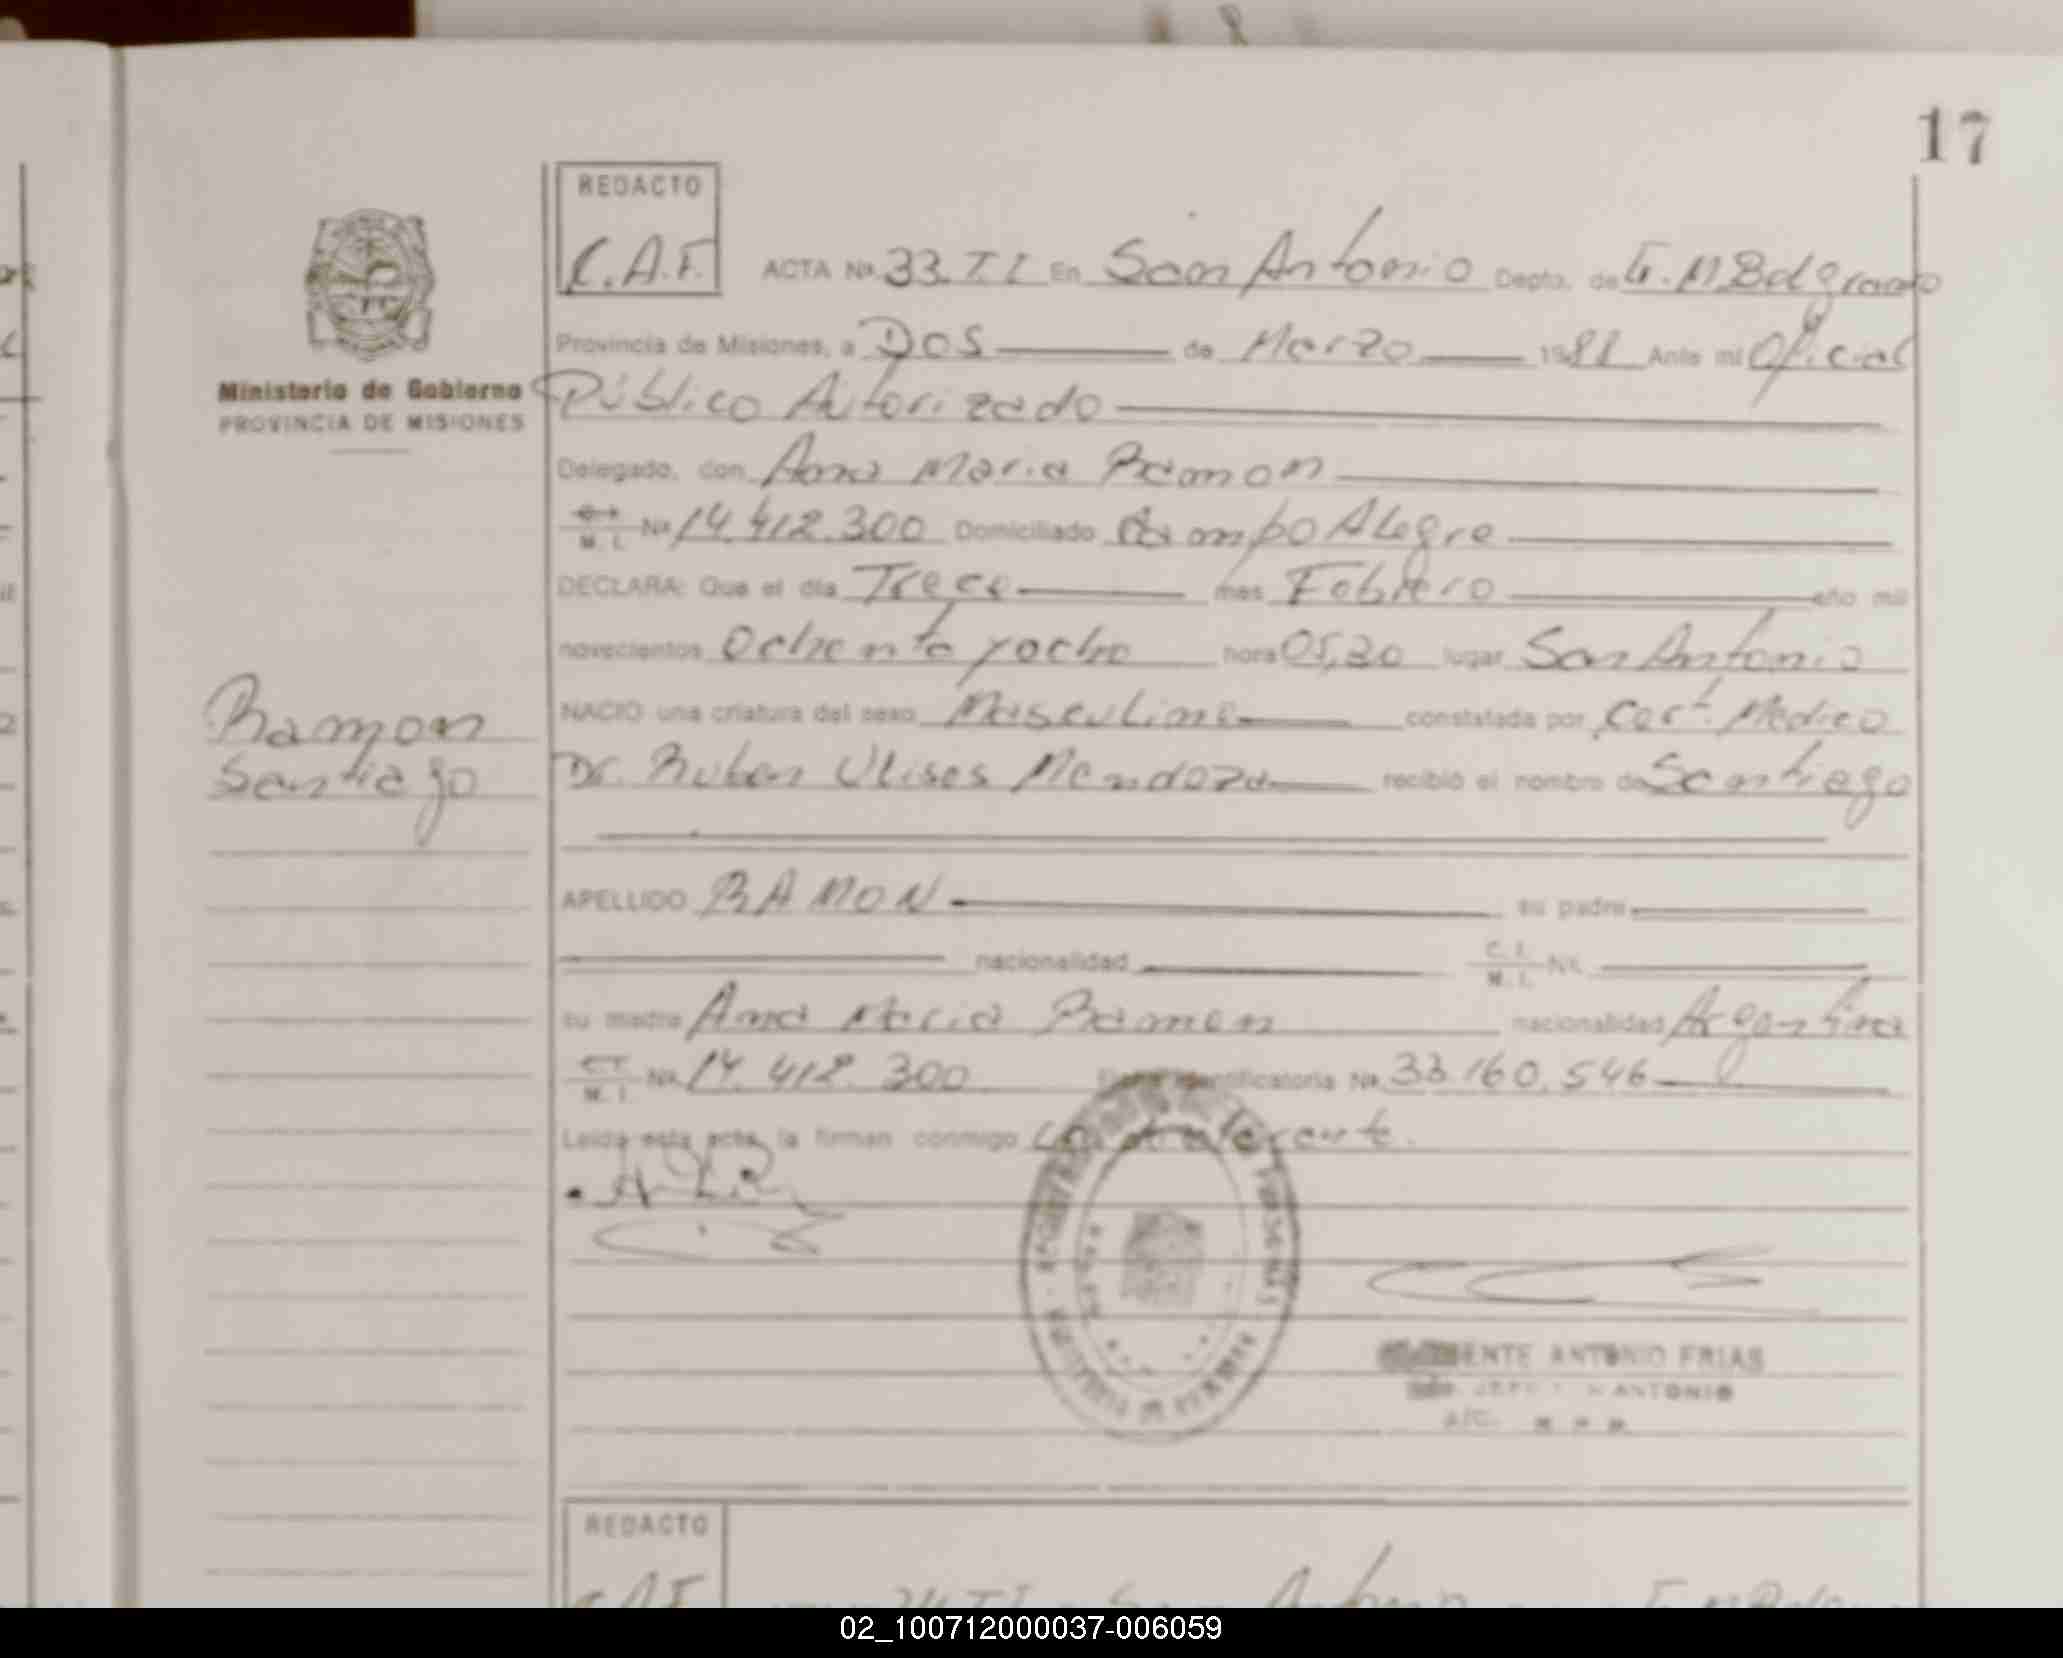 17
REDACTO
C.A.F.
ACTA Nº 33. T. I En San Antonio Depto. de G. M Belgrano
Provincia de Misiones, a Dos de Marzo 1988 Ante mi Oficial
Ministerio de Gobierno
PROVINCIA DE MISIONES
Público Autorizado
Delegado, don Ana Maria Ramon
M. I. Nº 14.412.300 Domiciliado Campo ALegre
DECLARA: Que el día Trece mes Febrero año mil
novecientos Ochenta y ocho hora 05,30 lugar San Antonio
NACIO una criatura del sexo Masculino constatada por Cert. Medico
Ramon
Santiago
Dr. Ruben Ulises Mendoza recibió el nombre de Santiago
APELLIDO RAMON su padre
nacionalidad C. I. M. I. Nº
su madre Ana Maria Ramon nacionalidad Argentina
M. I. Nº 14. 412. 300 Ficha Identificatoria Nº 33.160.546
Leída esta acta, la firman conmigo
ANTONIO FRIAS
ANTONIO
A/C.
REDACTO
C.A.F.
02_100712000037-006059